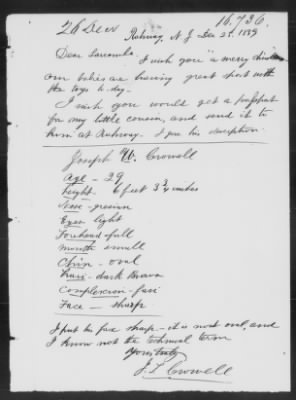 26 Decr 16.736.
Rahway, N. J Dec 25th 1889
Dear
I wish you "a merry
our babies are having great sport with
the toys to-day.
I wish you would get a passport
for my little cousin, and send it to
him at Rahway. I give his description.
Joseph W. Crowell
Age - 29
height - 6 feet 3 3/4 inches
Nose - grecian
Eyes light
Forehead full
mouth small
Chin - oval
hair - dark brown
Complexion - fair
Face - sharp
I put his face sharp - it is not oval, and
I know not the technical term
Yours truly
J. T. Crowell